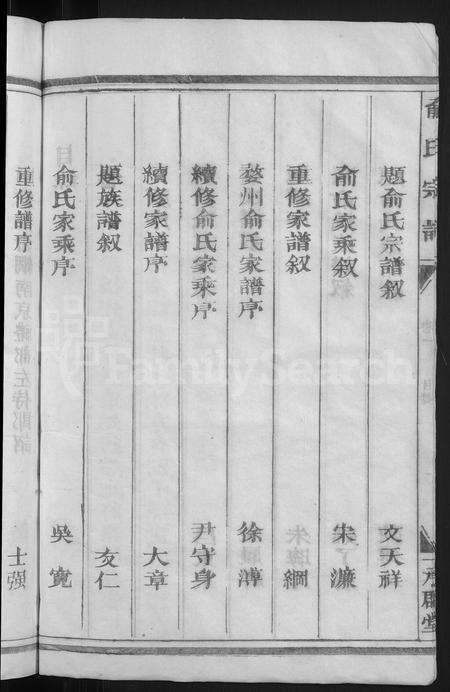 俞氏宗譜
題俞氏宗譜叙 文天祥
俞氏家乘叙 宋濂
重修家譜叙 綱
婺州俞氏家譜序 徐
續修俞氏家乘序 尹守身
續修家譜序 大章
題族譜叙 友仁
俞氏家乘序 吳寬
重修譜序 士强
FamilySearch